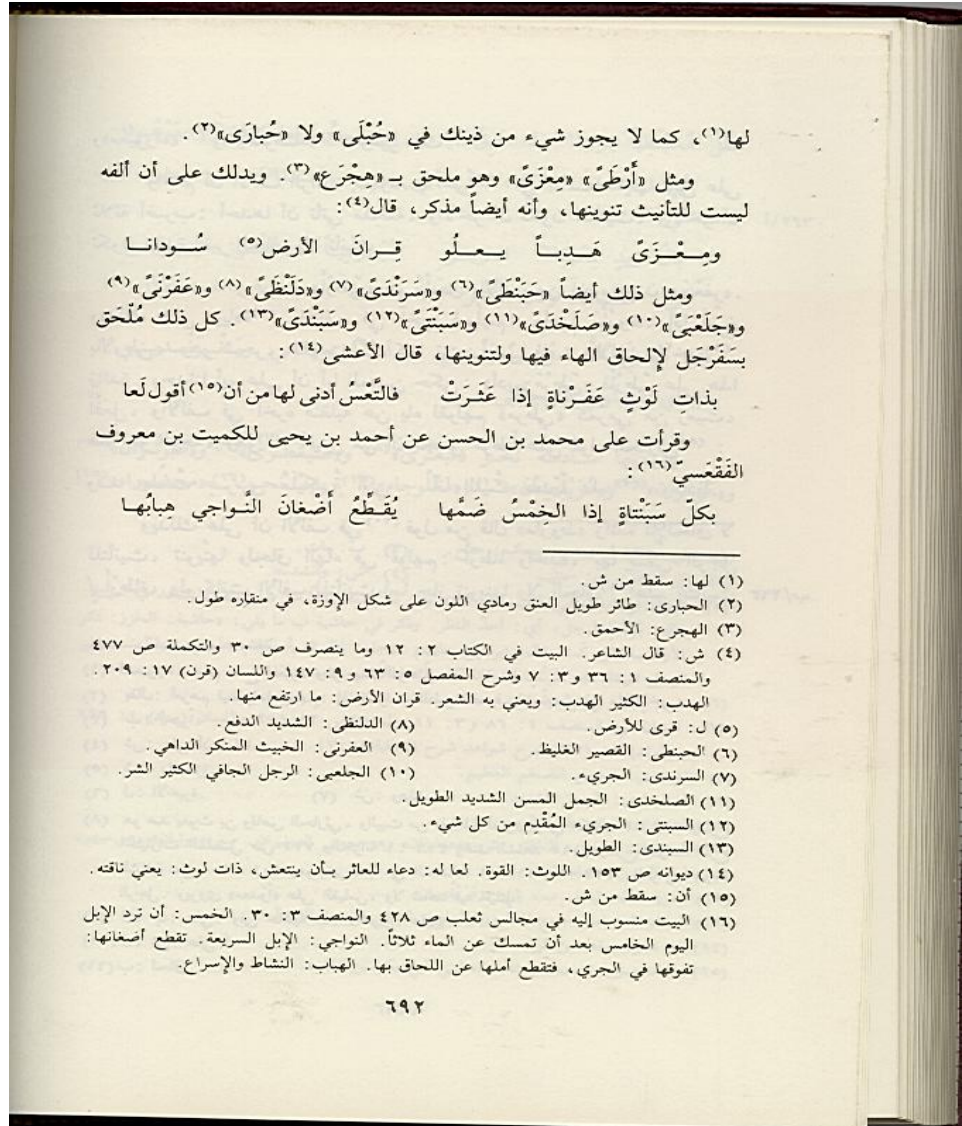 لها(١)، كما لا يجوز شيء من ذينك في «حُبْلَى» ولا «حُبارَى»(٢).
ومثل «أَرْطَىً» «مِعْزَىً» وهو ملحق بـ «هِجْرَع»(٣). ويدلك على أن ألفه
ليست للتأنيث تنوينها، وأنه أيضاً مذكر، قال(٤):
ومِـعْـزَىً هَـدِبـاً يـعـلُو قِـرانَ الأرض(٥) سُـودانـا
ومثل ذلك أيضاً «حَبَنْطَىً»(٦) و«سَرَنْدَىً»(٧) و«دَلَنْظَىً»(٨) و«عَفَرْنَىً»(٩)
و«جَلَعْبَىً»(١٠) و«صَلَخْدَىً»(١١) و«سَبَنْتَىً»(١٢) و«سَبَنْدَىً»(١٣). كل ذلك مُلْحَق
بسَفَرْجَل لإلحاق الهاء فيها ولتنوينها، قال الأعشى(١٤):
بذاتِ لَوْثٍ عَفَرْناةٍ إذا عَثَرَتْ فالتَّعْسُ أدنى لها من أن(١٥) أقول لَعا
وقرأت على محمد بن الحسن عن أحمد بن يحيى للكميت بن معروف
الفَقْعَسيّ(١٦):
بكلّ سَبَنْتاةٍ إذا الخِمْسُ ضَمَّها يُقَـطِّعُ أَضْغانَ النَّـواجي هِبابُهـا
(١) لها: سقط من ش.
(٢) الحبارى: طائر طويل العنق رمادي اللون على شكل الإوزة، في منقاره طول.
(٣) الهجرع: الأحمق.
(٤) ش: قال الشاعر. البيت في الكتاب ٢: ١٢ وما ينصرف ص ٣٠ والتكملة ص ٤٧٧
والمنصف ١: ٣٦ و٣: ٧ وشرح المفصل ٥: ٦٣ و٩: ١٤٧ واللسان (قرن) ١٧: ٢٠٩.
الهدب: الكثير الهدب: ويعني به الشعر. قران الأرض: ما ارتفع منها.
(٥) ل: قرى للأرض. (٨) الدلنظى: الشديد الدفع.
(٦) الحبنطى: القصير الغليظ. (٩) العفرنى: الخبيث المنكر الداهي.
(٧) السرندى: الجريء. (١٠) الجلعبى: الرجل الجافي الكثير الشر.
(١١) الصلخدى: الجمل المسن الشديد الطويل.
(١٢) السبنتى: الجريء المُقْدِم من كل شيء.
(١٣) السبندى: الطويل.
(١٤) ديوانه ص ١٥٣. اللوث: القوة. لعا له: دعاء للعاثر بأن ينتعش، ذات لوث: يعني ناقته.
(١٥) أن: سقط من ش.
(١٦) البيت منسوب إليه في مجالس ثعلب ص ٤٢٨ والمنصف ٣: ٣٠. الخمس: أن ترد الإبل
اليوم الخامس بعد أن تمسك عن الماء ثلاثاً. النواجي: الإبل السريعة. تقطع أضغانها:
تفوقها في الجري، فتقطع أملها عن اللحاق بها. الهباب: النشاط والإسراع.
٦٩٢